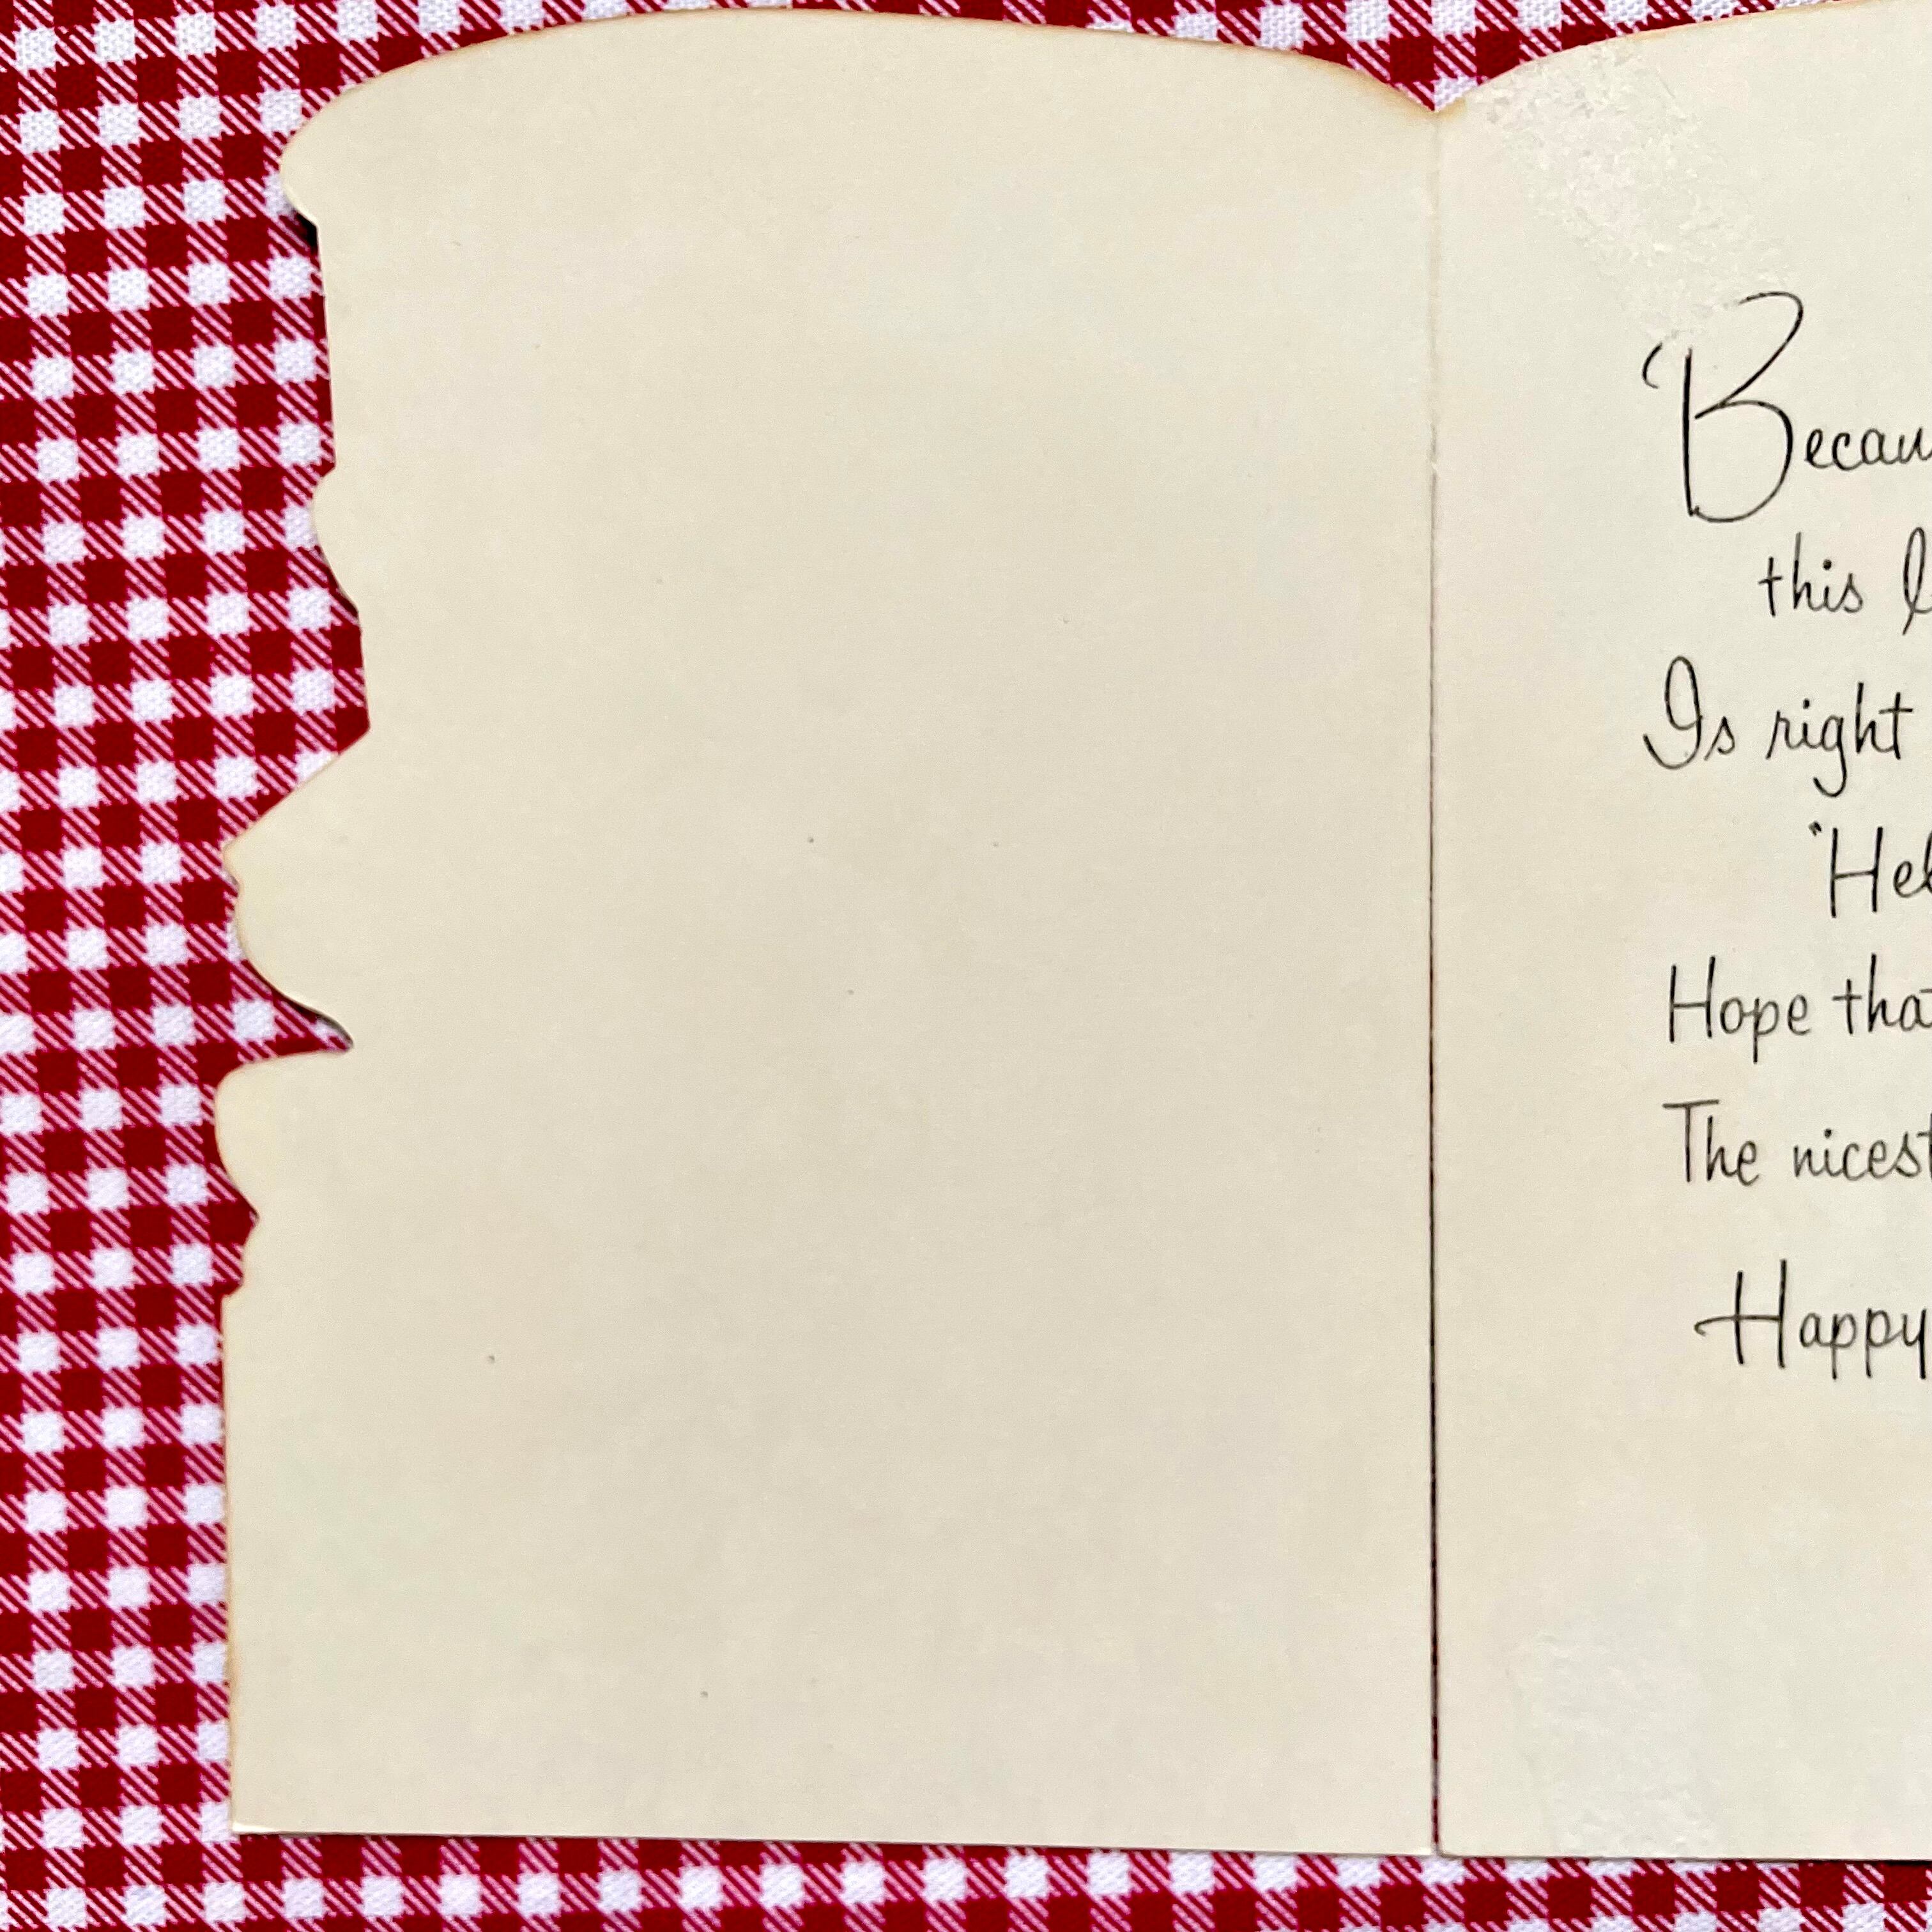 Becau
this l
Is right
"Hel
Hope that
The nicest
Happy